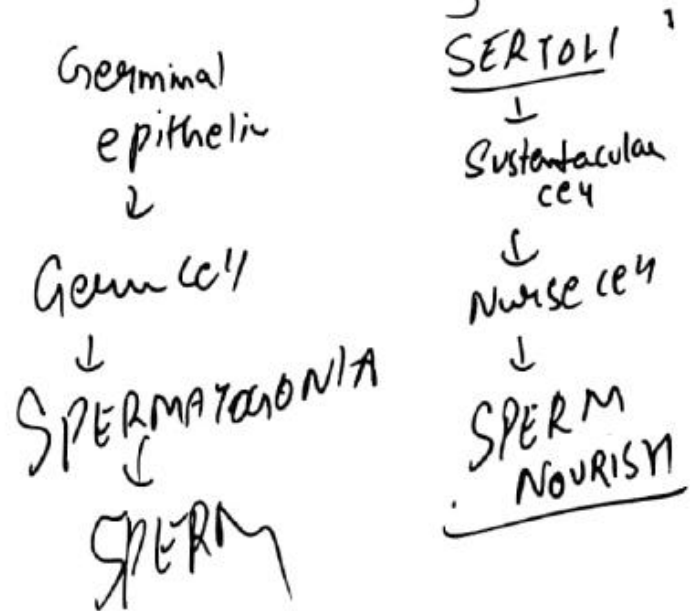 Germinal
epitheliu
↓
Germ cell
↓
SPERMATOGONIA
↓
SPERM
SERTOLI
↓
Sustentacular
cell
↓
Nurse cell
↓
SPERM
NOURISH